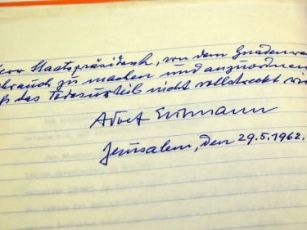 Herr Staatspräsident, von dem Gnadenre
brauch zu machen und anzuordnen
ß das Todesurteil nicht vollstreckt wi
Adolf Eichmann
Jerusalem, den 29.5.1962.